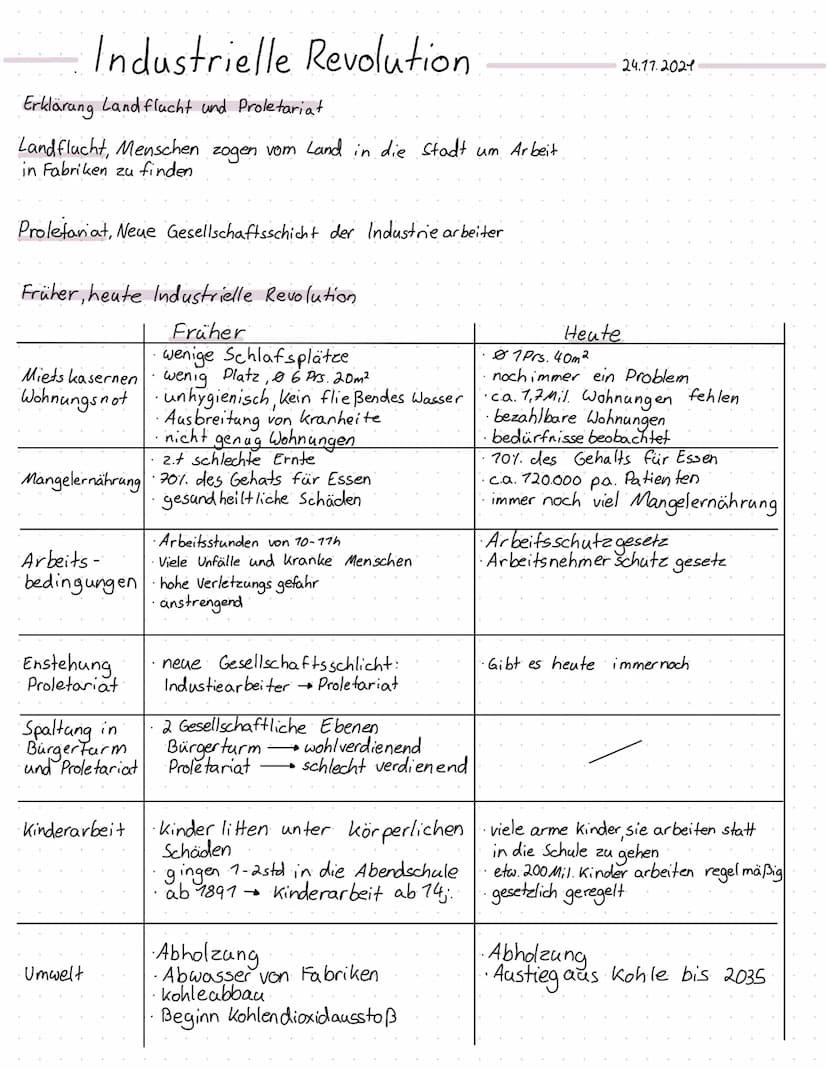 Industrielle Revolution
24.11.2021
Erklärung Landflucht und Proletariat
Landflucht, Menschen zogen vom Land in die Stadt um Arbeit
in Fabriken zu finden
Proletariat, Neue Gesellschaftsschicht der Industriearbeiter
Früher, heute Industrielle Revolution
Früher
Heute
Mietskasernen
Wohnungsnot
· wenige Schlafsplätze
· wenig Platz, ø 6 Prs. 20m²
· unhygienisch, kein fließendes Wasser
· Ausbreitung von kranheite
· nicht genug Wohnungen
· ø 1Prs. 40m²
· noch immer ein Problem
· ca. 1,2Mil. Wohnungen fehlen
· bezahlbare Wohnungen
· bedürfnisse beobachtet
Mangelernährung
· z.t schlechte Ernte
· 70% des Gehats für Essen
· gesundheiltliche Schäden
· 10% des Gehalts für Essen
· c.a. 120.000 pa. Patienten
· immer noch viel Mangelernährung
Arbeits-
bedingungen
· Arbeitsstunden von 10-11h
· Viele Unfälle und kranke Menschen
· hohe Verletzungs gefahr
· anstrengend
· Arbeitsschutzgesetz
· Arbeitsnehmer schutz gesetz
Enstehung
Proletariat
· neue Gesellschaftsschlicht:
Industiearbeiter → Proletariat
· Gibt es heute immernoch
Spaltung in
Bürgerturm
und Proletariat
· 2 Gesellschaftliche Ebenen
Bürgerturm → wohlverdienend
Proletariat → schlecht verdienend
Kinderarbeit
· Kinder litten unter körperlichen
Schäden
· gingen 1-2std in die Abendschule
· ab 1891 → Kinderarbeit ab 14j.
· viele arme Kinder, sie arbeiten statt
in die Schule zu gehen
· etw. 200 Mil. Kinder arbeiten regelmäßig
· gesetzlich geregelt
Umwelt
· Abholzung
· Abwasser von Fabriken
· kohleabbau
· Beginn Kohlendioxidausstoß
· Abholzung
· Austieg aus Kohle bis 2035